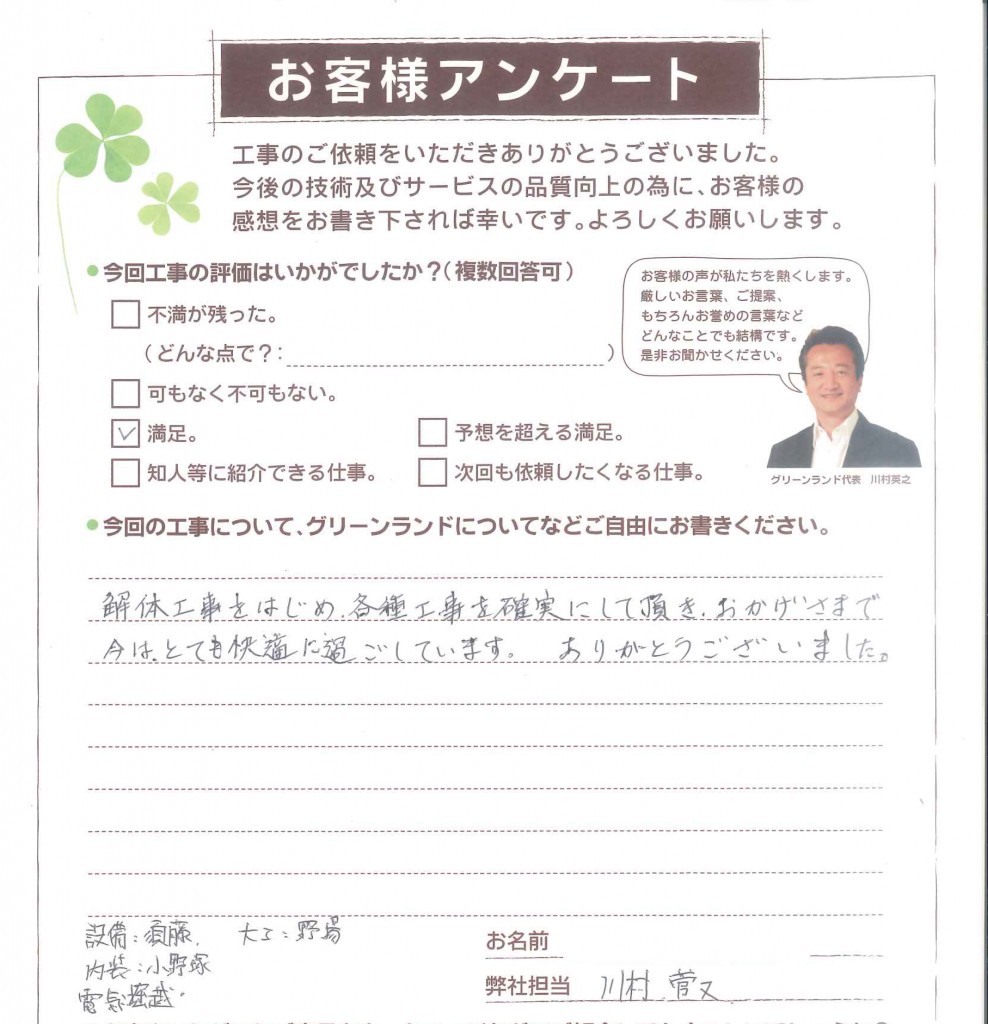 お客様アンケート
工事のご依頼をいただきありがとうございました。
今後の技術及びサービスの品質向上の為に、お客様の
感想をお書き下されば幸いです。よろしくお願いします。
今回工事の評価はいかがでしたか？（複数回答可）
不満が残った。
（どんな点で？：　）
可もなく不可もない。
満足。
予想を超える満足。
知人等に紹介できる仕事。
次回も依頼したくなる仕事。
お客様の声が私たちを熱くします。
厳しいお言葉、ご提案、
もちろんお誉めの言葉など
どんなことでも結構です。
是非お聞かせください。
グリーンランド代表　川村英之
今回の工事について、グリーンランドについてなどご自由にお書きください。
解体工事をはじめ、各種工事を確実にして頂き、おかげさまで
今は、とても快適に過ごしています。　ありがとうございました。
設備：須藤、　大工：野場
内装：小野塚
電気：堀越
お名前
弊社担当　川村